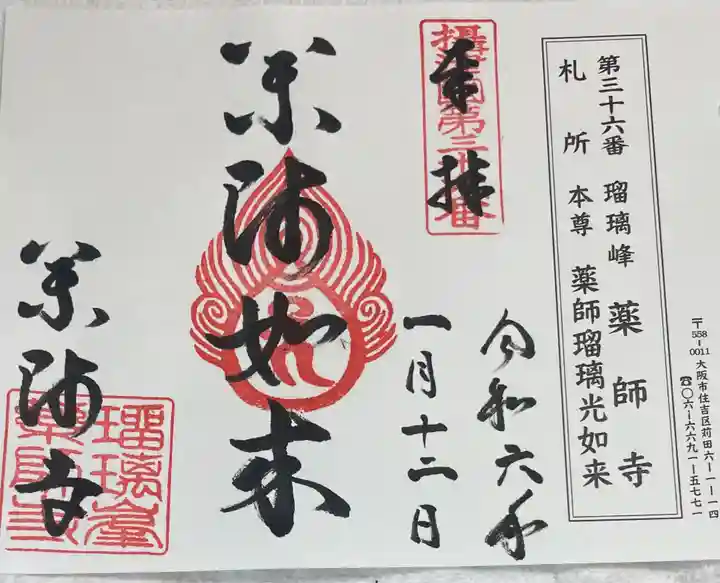 〒558-0011 大阪市住吉区苅田六ー一ー一四
☎〇六ー六六九一ー五七七一
第三十六番 瑠璃峰 薬師寺
札所 本尊 薬師瑠璃光如来
奉拝
摂津国第三十六番
令和六年
一月十二日
薬師如来
薬師寺
瑠璃峯
薬師寺